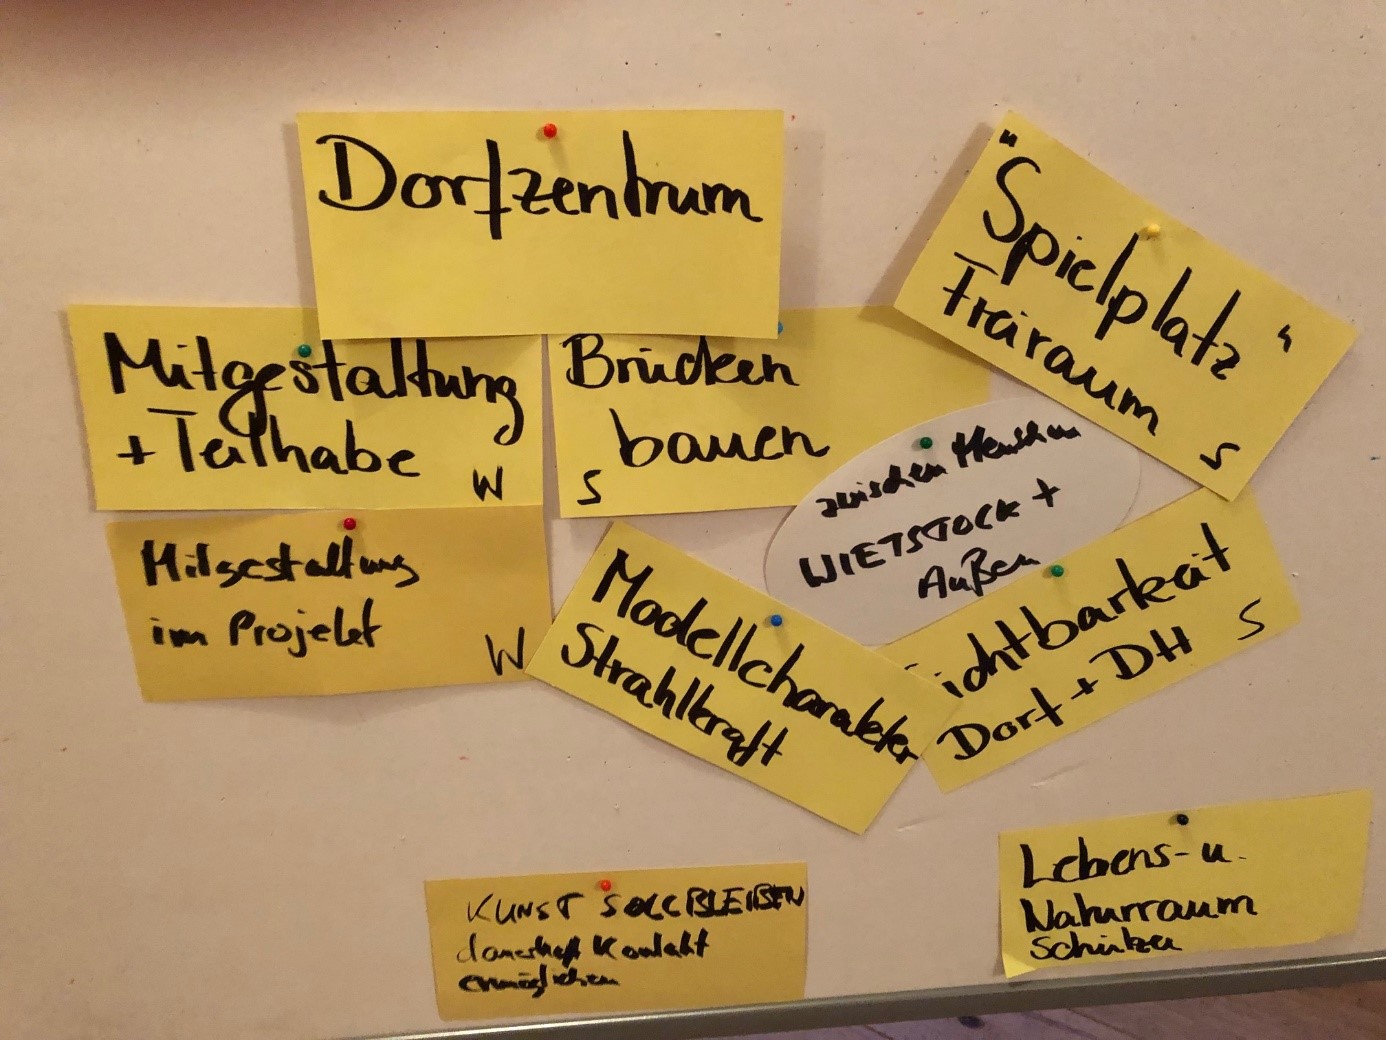 Dorfzentrum
"Spielplatz"
Freiraum
S
Mitgestaltung
+ Teilhabe
W
Brücken
bauen
S
zwischen Menschen
WIETSTOCK +
Außen
Mitgestaltung
im Projekt
W
Modellcharakter
Strahlkraft
ichtbarkeit
Dorf + DH
S
KUNST SOLL BLEIBEN
dauerhaft Kontakt
ermöglichen
Lebens- u.
Naturraum
schützen